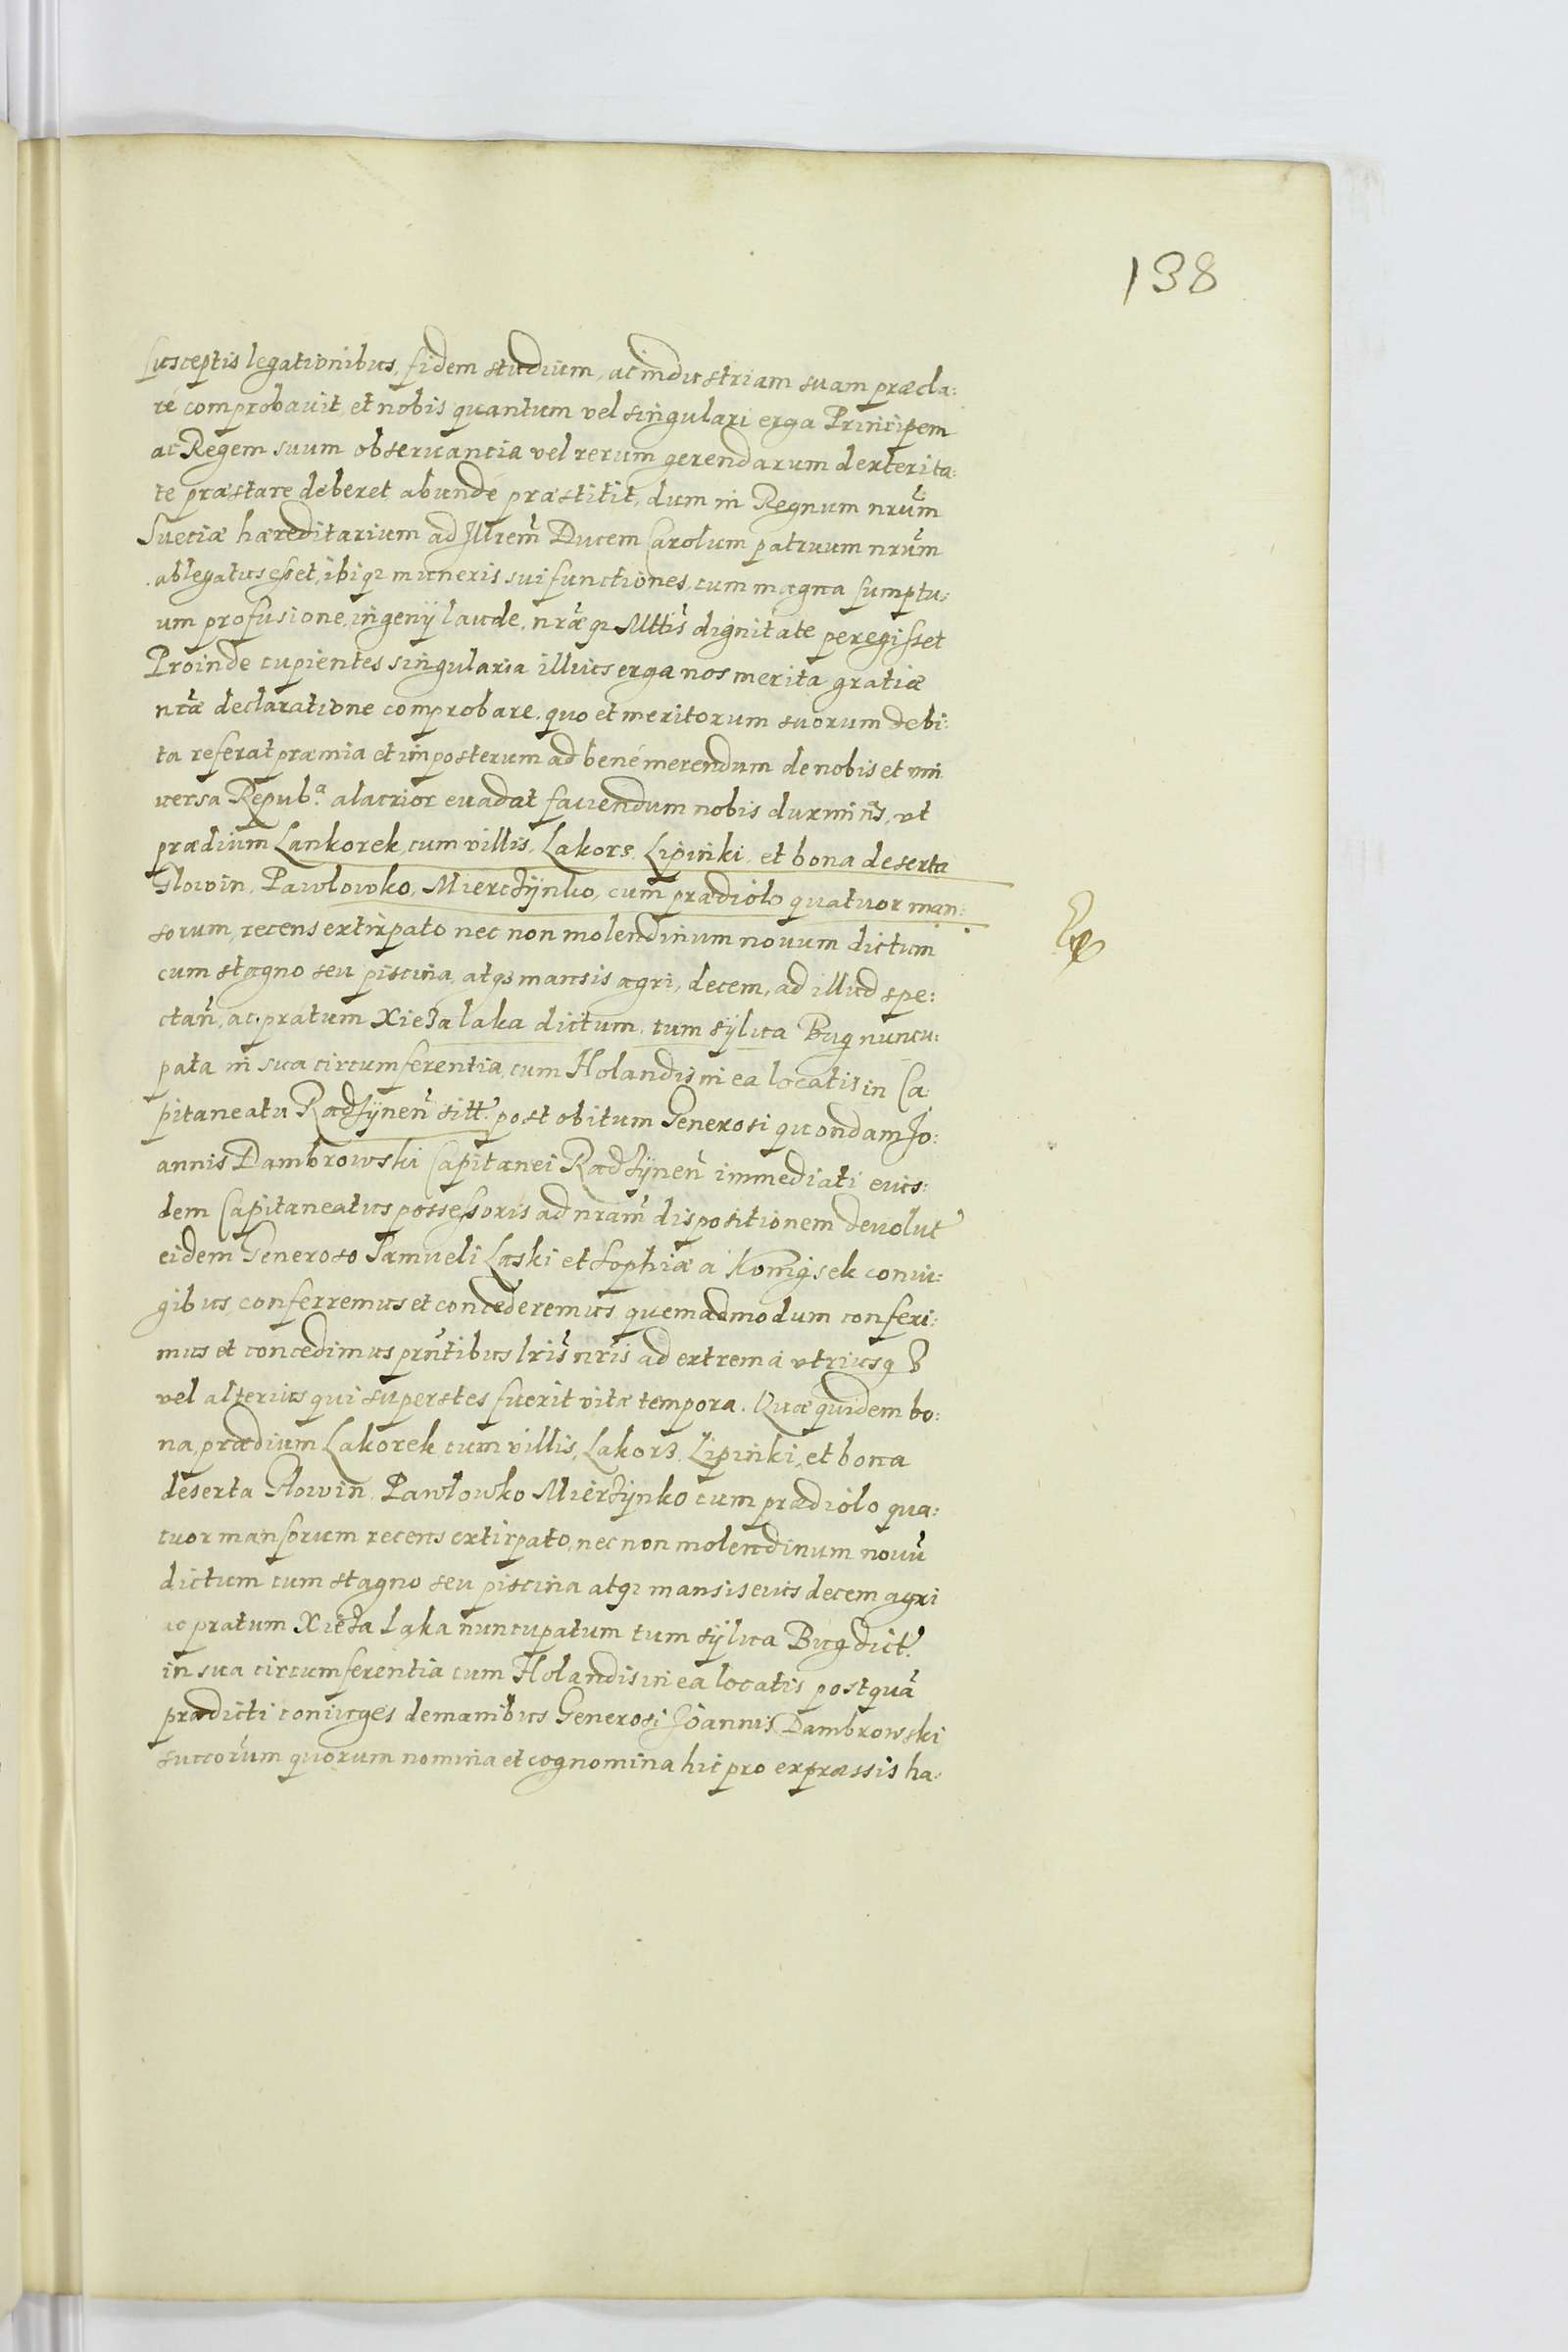 138
susceptis legationibus, fidem studium, ac industriam suam præcla:
ré comprobauit, et nobis quantum vel singulari erga Principem
ac Regem suum obseruantia vel rerum gerendarum dexterita:
te præstare deberet abundé præstitit, dum in Regnum nrum̃
Sueciæ hæreditarium ad Illrem̃ Ducem Carolum patruum nrum̃
ablegatus esset, ibiq₃ muneris sui functiones, cum magna sumptu:
um profusione, ingenij laude, nræ̃q₃ Mttis̃ dignitate peregisset
Proinde cupientes singularia illius erga nos merita gratiæ
nræ̃ declaratione comprobare, quo et meritorum suorum debi:
ta referat præmia et imposterum ad bené merendum de nobis et vni
uersa Repub.ᵃ alacrior euadat faciendum nobis duximus, vt
prædium Lankorek, cum villis, Lakors, Lipinki, et bona deserta
Glowin, Pawlowko, Mierczÿnko, cum prædiolo quatuor man:
sorum, recens extirpato nec non molendinum nouum dictum
cum stagno seu piscina, atq₃ mansis agri, decem, ad illud spe:
ctañ, ac pratum Xieza laka dictum, tum sÿlua Bug nuncu:
pata in sua circumferentia, cum Holandis in ea locatis in Ca:
pitaneatu Radzÿneñ sitt. post obitum Generosi quondam Jo:
annis Dambrowski Capitanei Radzÿneñ immediati eius:
dem Capitaneatus possessoris ad nram̃ dispositionem deuolut
eidem Generoso Samueli Laski et Sophiæ a Konigsek coniu:
gibus conferremus et concederemus quemadmodum conferi:
mus et concedimus prñtibus lris̃ nris̃ ad extrema vtriusq₃
vel alterius qui superstes fuerit vitæ tempora. Quæ quidem bo:
na, prædium Lakorek cum villis, Lakors, Lipinki, et bona
deserta Glowin, Pawlowko Mierzÿnko cum prædiolo qua:
tuor mansorum recens extirpato, nec non molendinum nouũ
dictum cum stagno seu piscina atq₃ mansis eius decem agri
ac pratum Xieza Laka nuncupatum tum sÿlua Bug dict.
in sua circumferentia cum Holandis in ea locatis postquã
prædicti coniuges de manibus Generosi Joannis Dambrowski
succorum quorum nomina et cognomina hic pro expræssis ha: